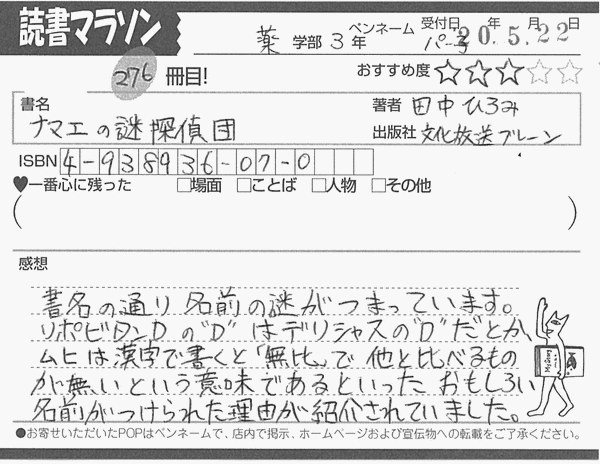 読書マラソン
薬 学部 3 年 ペンネーム 受付日 20年 5月 22日
276 冊目! おすすめ度 ★★★☆☆
書名 ナマエの謎探偵団
著者 田中ひろみ
出版社 文化放送ブレーン
ISBN 4-938936-07-0
♥一番心に残った □場面 □ことば □人物 □その他
( )
感想
書名の通り名前の謎がつまっています。
リポビタンDの"D"はデリシャスの"D"だとか、
ムヒは漢字で書くと「無比」で他と比べるもの
が無いという意味であるといったおもしろい
名前がつけられた理由が紹介されていました。
●お寄せいただいたPOPはペンネームで、店内で掲示、ホームページおよび宣伝物への転載をご了承ください。